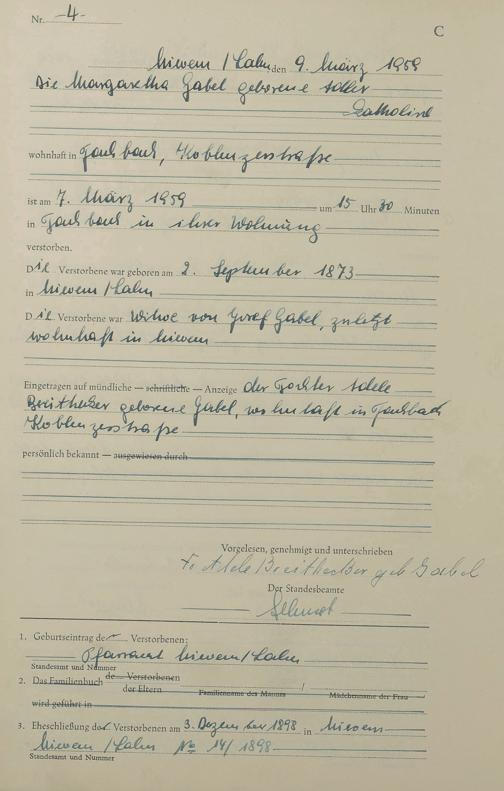 Nr. -4-
C
Miewen / Lahn, den 9. März 1959
Die Margaretha Gabel geborene Adler
katholisch
wohnhaft in Fachbach, Koblenzerstraße
ist am 7. März 1959 um 15 Uhr 30 Minuten
in Fachbach in ihrer Wohnung
verstorben.
Die Verstorbene war geboren am 2. September 1873
in Miewen / Lahn
Die Verstorbene war Witwe von Josef Gabel, zuletzt
wohnhaft in Miewen
Eingetragen auf mündliche — schriftliche — Anzeige der Tochter Adele
Breithecker geborene Gabel, wohnhaft in Fachbach
Koblenzerstraße
persönlich bekannt — ausgewiesen durch
Vorgelesen, genehmigt und unterschrieben
Fr. Adele Breithecker geb Gabel
Der Standesbeamte
1. Geburtseintrag der Verstorbenen:
Pfarramt Miewen / Lahn
Standesamt und Nummer
2. Das Familienbuch der Verstorbenen
der Eltern
Familienname des Mannes / Mädchenname der Frau
wird geführt in
3. Eheschließung der Verstorbenen am 3. Dezember 1898 in Miewen
Miewen / Lahn No 14/1898
Standesamt und Nummer